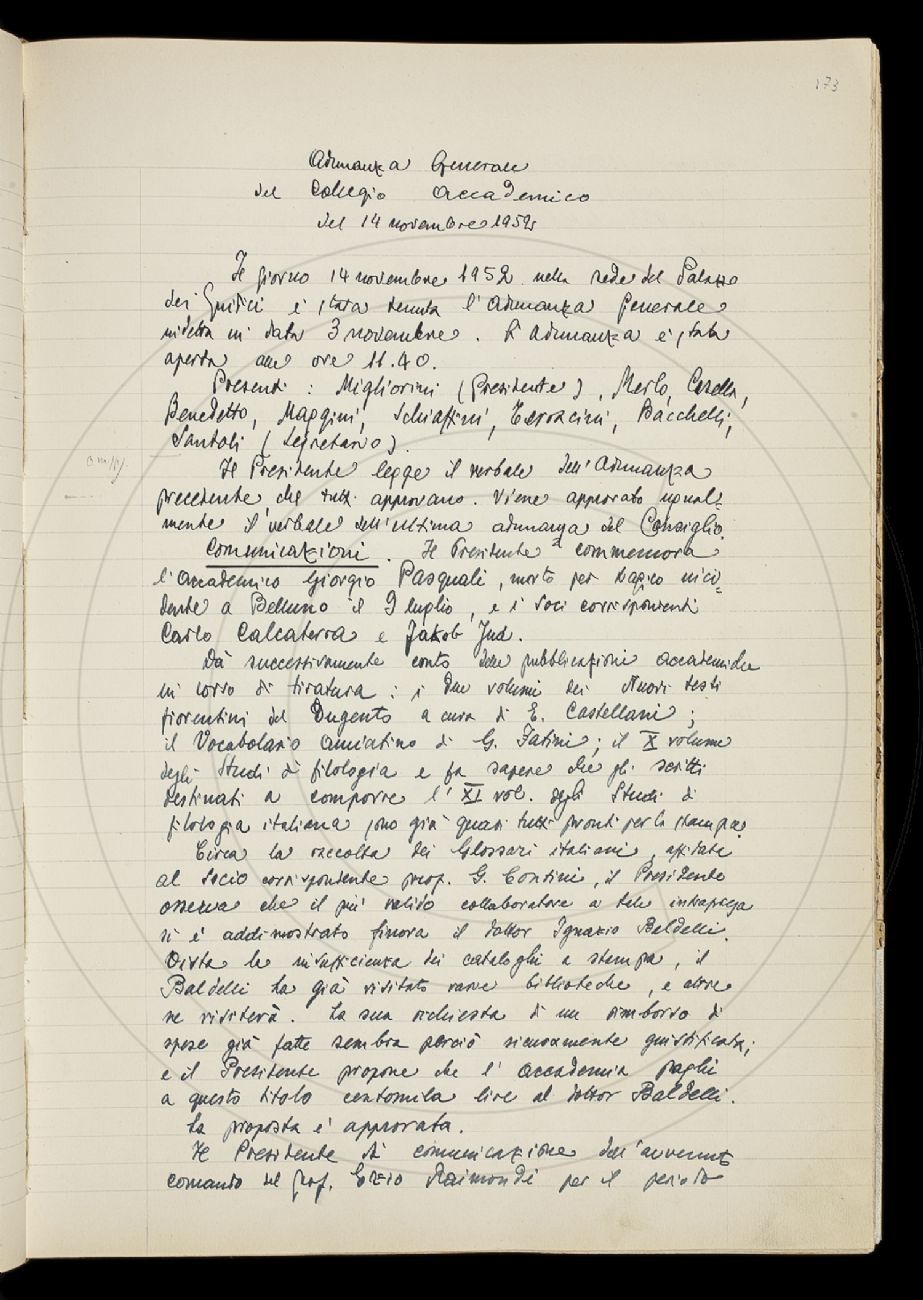 173
Adunanza Generale
del Collegio Accademico
del 14 novembre 1952
Il giorno 14 novembre 1952 nella sede del Palazzo
dei Giudici è stata tenuta l'Adunanza Generale
indetta in data 3 novembre. L'Adunanza è stata
aperta alle ore 11.40.
Presenti: Migliorini (Presidente), Merlo, Casella,
Benedetto, Maggini, Schiaffini, Terracini, Bacchelli,
Santoli (Segretario).
Il Presidente legge il verbale dell'Adunanza
precedente, che tutti approvano. Viene approvato ugual=
mente il verbale dell'ultima adunanza del Consiglio.
Comunicazioni. Il Presidente commemora
l'Accademico Giorgio Pasquali, morto per tragico inci=
dente a Belluno il 9 luglio, e i Soci corrispondenti
Carlo Calcaterra e Jakob Jud.
Dà successivamente conto delle pubblicazioni accademiche
in corso di tiratura: i due volumi dei Nuovi testi
fiorentini del Dugento a cura di E. Castellani;
il Vocabolario amiatino di G. Fatini; il X volume
degli Studi di filologia e fa sapere che gli scritti
destinati a comporre l'XI vol. degli Studi di
filologia italiana sono già quasi tutti pronti per la stampa.
Circa la raccolta dei Glossari italiani, affidata
al Socio corrispondente prof. G. Contini, il Presidente
osserva che il più valido collaboratore a tale intrapresa
si è addimostrato finora il dottor Ignazio Baldelli.
Vista la insufficienza dei cataloghi a stampa, il
Baldelli ha già visitato varie biblioteche, e altre
ne visiterà. La sua richiesta di un rimborso di
spese già fatte sembra perciò sicuramente giustificata;
e il Presidente propone che l'Accademia paghi
a questo titolo centomila lire al dottor Baldelli.
La proposta è approvata.
Il Presidente dà comunicazione dell'avvenuto
comando del prof. Ezio Raimondi per il periodo